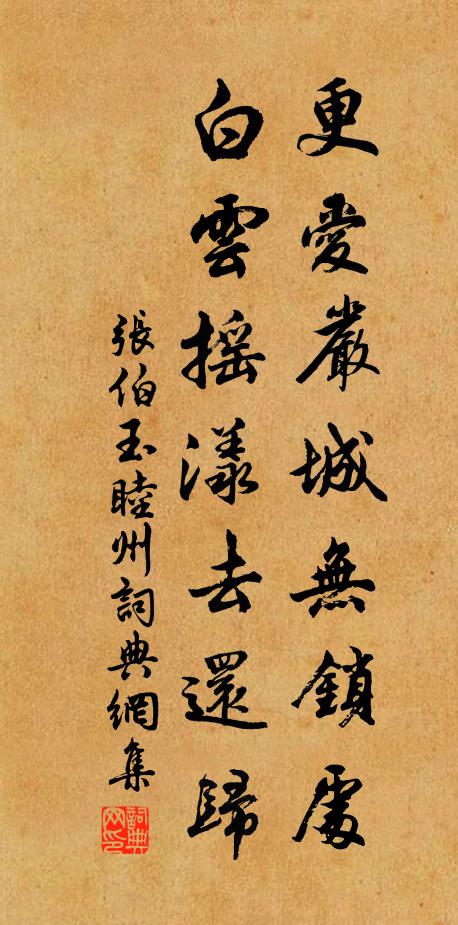 更愛嚴城無鎖處
白雲摇漾去還歸
張伯玉睦州詞典網集
詞典网印